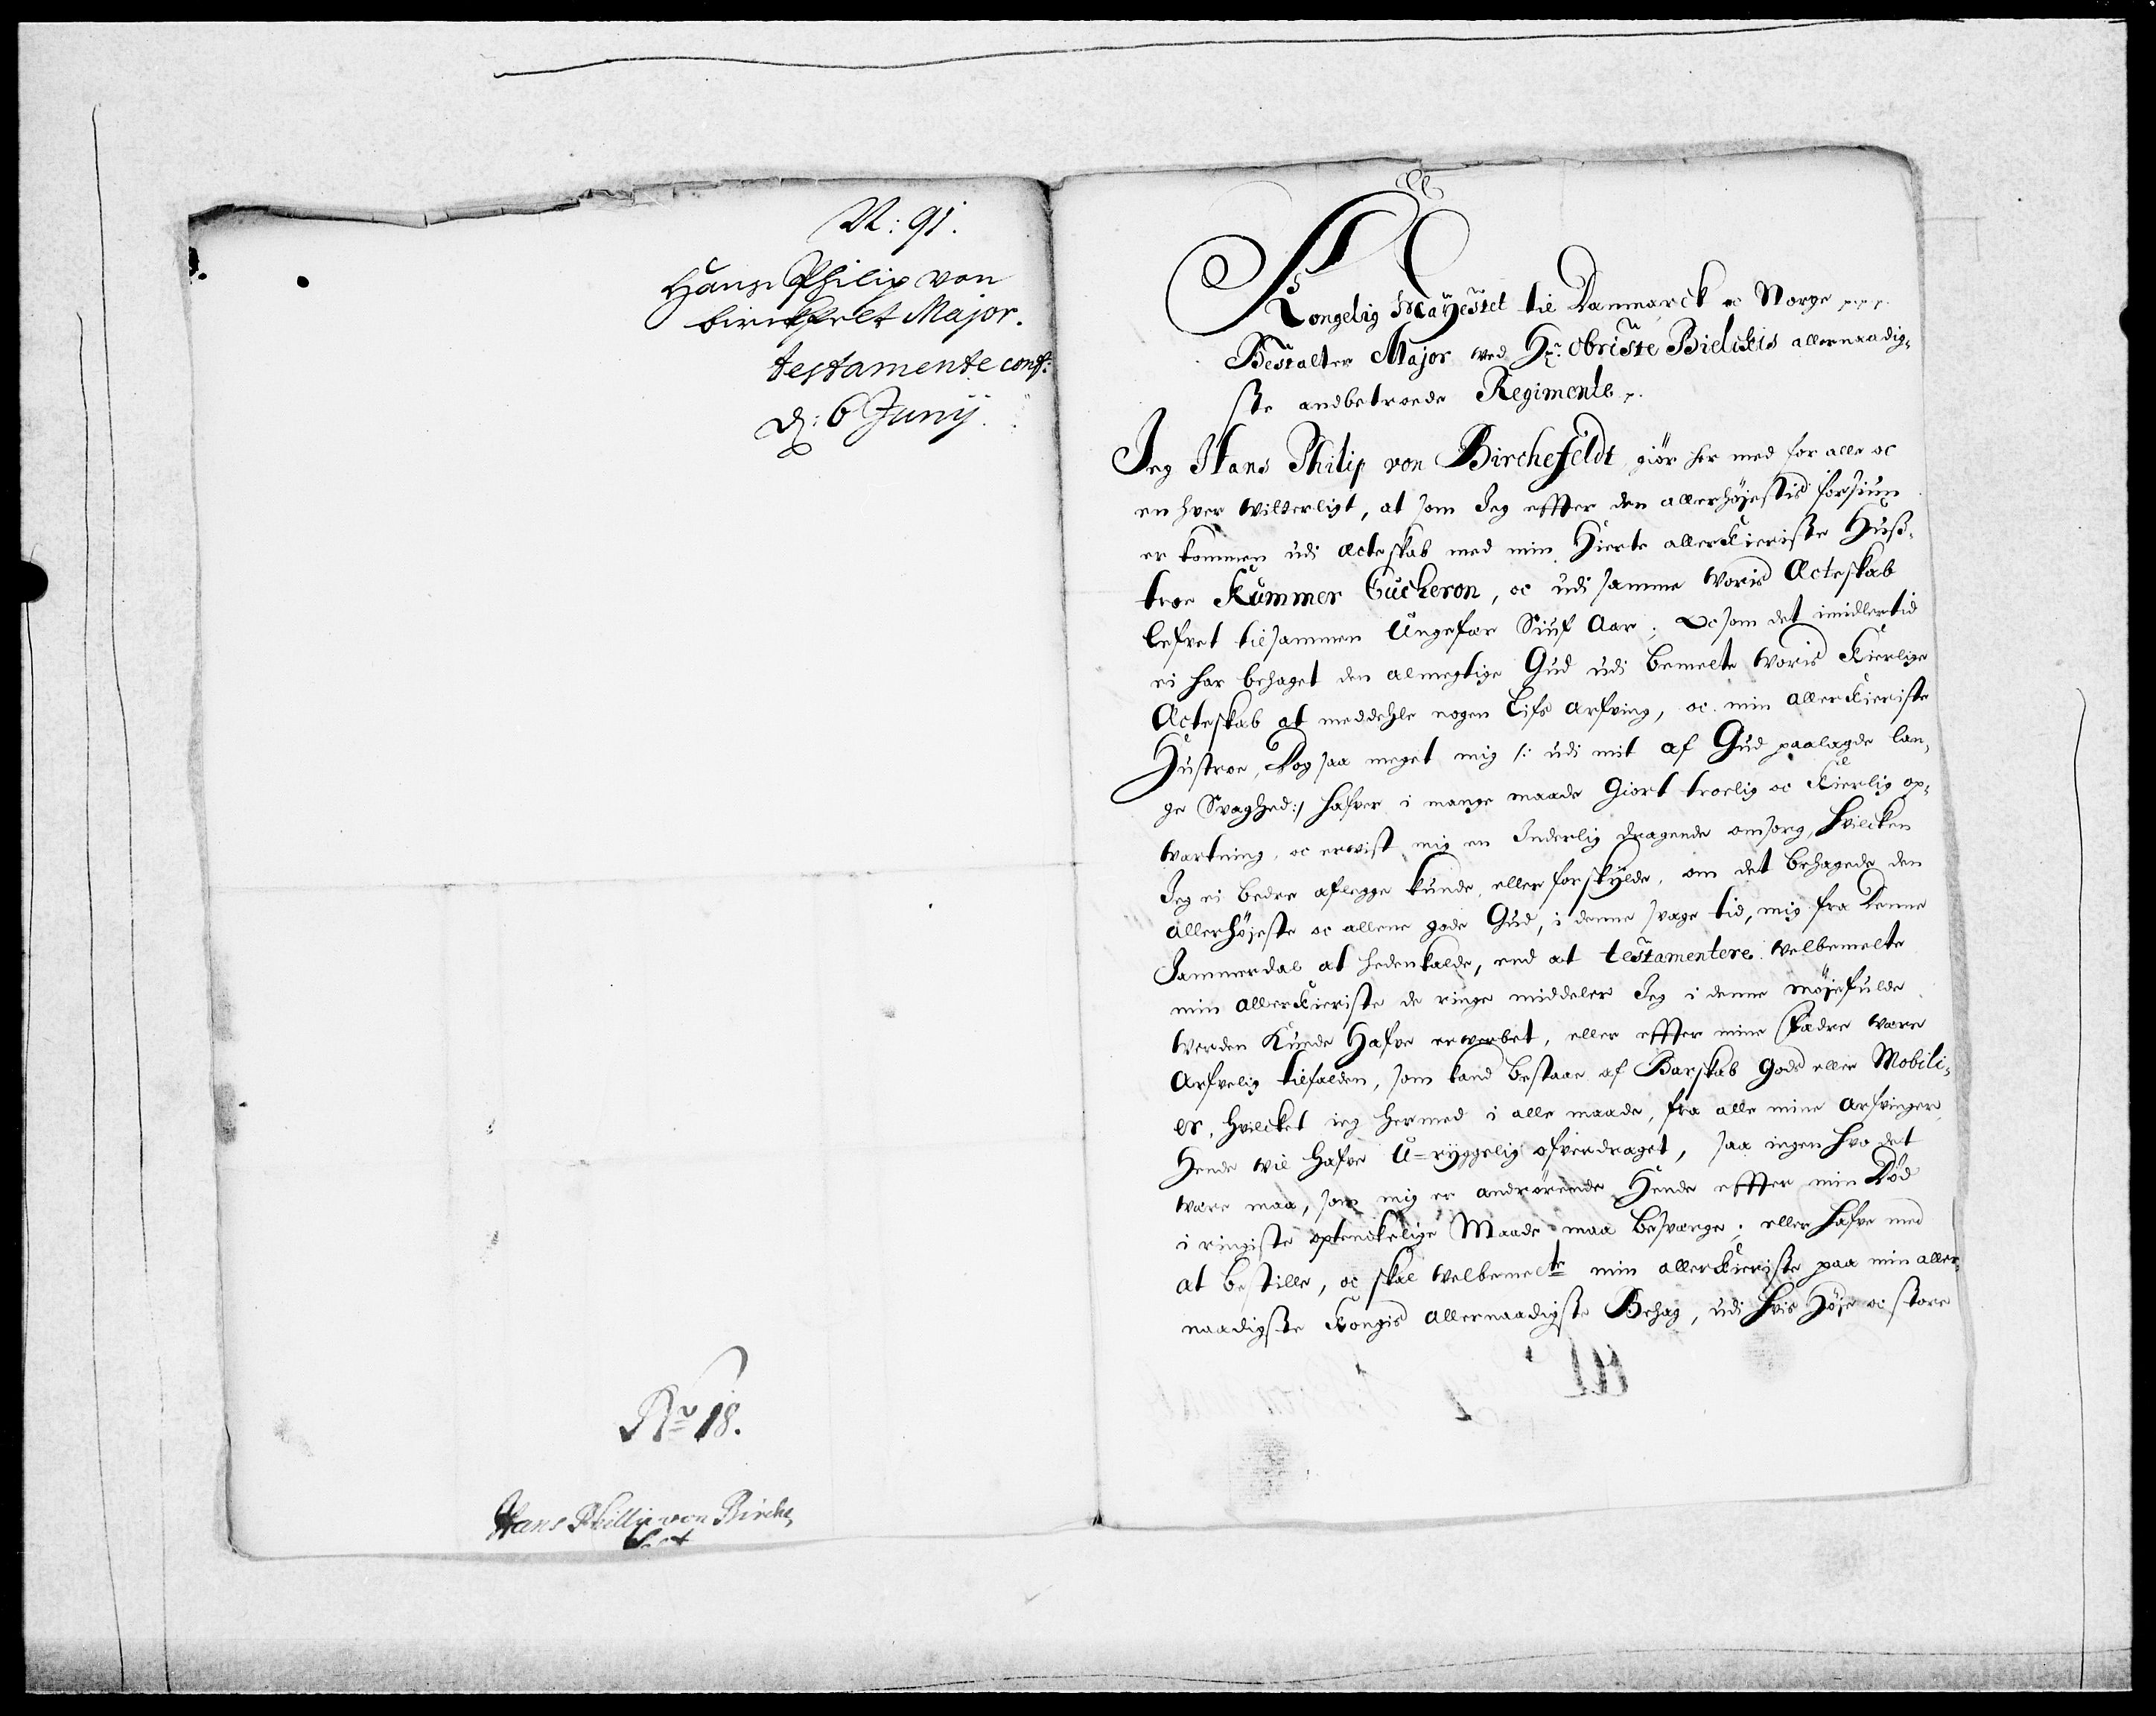 N: 91.
Hans Philip von
birckfelt Major.
testamente conf:
d: 6 Junij.
No 18.
Hans Phillip von Birche
felt
Kongelig Mayestet til Danmarck oc Norge
Bestalter Major ved Hr: Obriste Bielckis allernaadig-
ste andbetroede Regimente
Jeg Hans Philip von Birchefeldt giör her med for alle oc
en hver witterligt, at som Jeg effter den allerhöjestis forsiun
er kommen udi Acteskab med min Hierte allerkieriste Huß-
troe Kummer Cucheron, oc udi samme voris Acteskab
lefvet tilsammen Ungefær Siuf Aar; Oc som det imidlertid
ei har behaget den almegtige Gud udi bemelte voris kierlige
Acteskab at meddehle nogen Lifs arfving, oc min allerkieriste
Hustroe, dog saa meget mig /: udi mit af Gud paalagde lan-
ge Svaghed:/ hafver i mange maade giort troelig oc kierlig op-
vartning, oc ervist mig en Inderlig dragende omsorg, hvilcken
Jeg ei bedre aflegge kunde, eller forskylde, om det behagede den
allerhöjeste oc allene gode Gud, i denne svage tid, mig fra denne
Jammerdal at hedenkalde, end at testamentere velbemelte
min allerkieriste de ringe middeler Jeg i denne möjefulde
Verden kunde hafve erverbet, eller effter mine Fædre være
Arfvelig tilfalden, som kand bestaae af Barskab gods eller Mobili-
er, hvilcket ieg hermed i alle maade, fra alle mine arfvinger
hende vil hafve U-ryggelig ofverdraget, saa ingen hvo det
være maa, som mig er andrörende Hende effter min Död
i ringiste optenckelige Maade maa besværge; eller hafve med
at bestille, oc skal velbemelte min allerkieriste paa min aller-
naadigste Kongis allernaadigste Behag, udi hvis Höje oc store